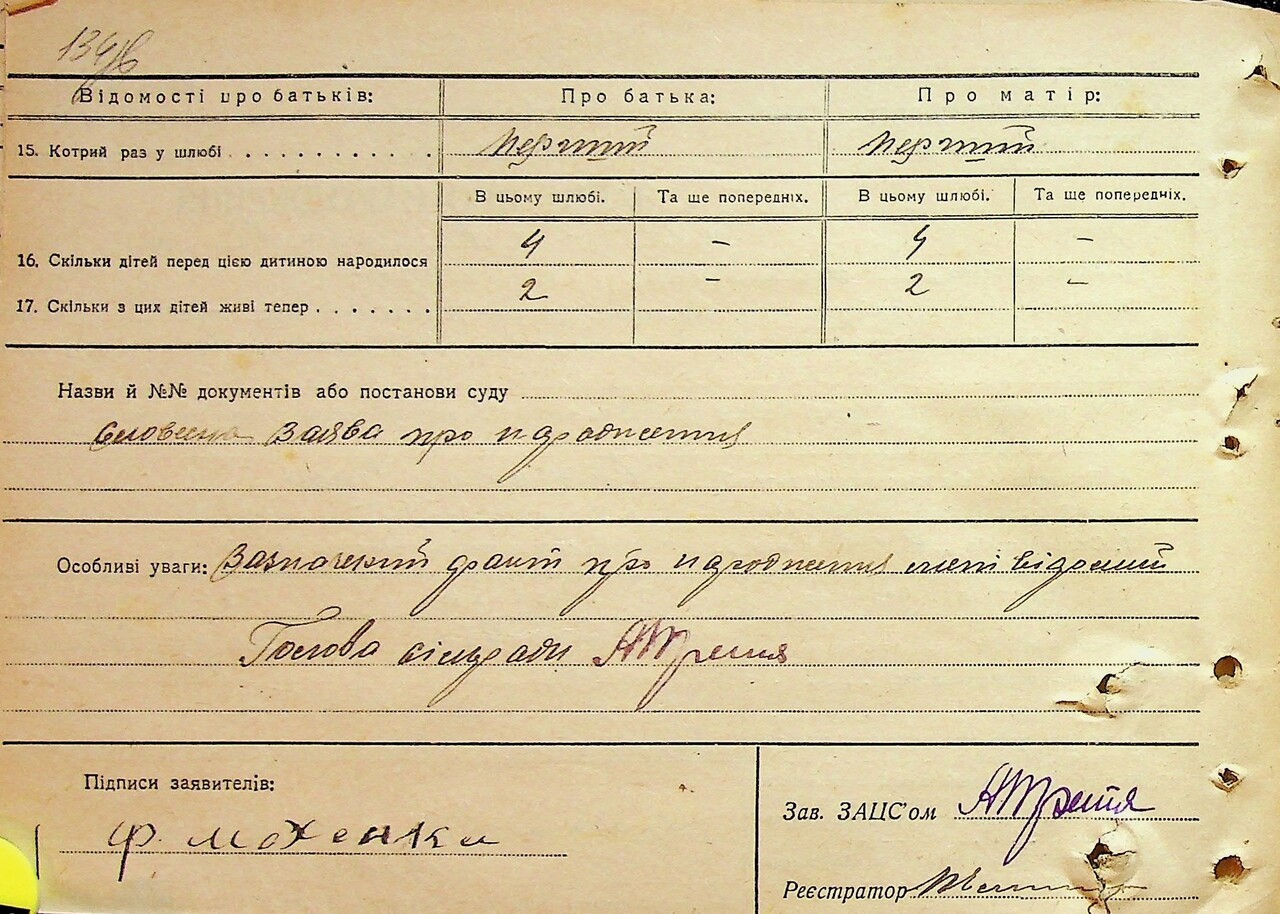 134/6
Відомості про батьків: Про батька: Про матір:
15. Котрий раз у шлюбі . . . . . . . . . . . перший перший
В цьому шлюбі. Та ще попередніх. В цьому шлюбі. Та ще попередніх.
16. Скільки дітей перед цією дитиною народилося 4 – 4 –
17. Скільки з цих дітей живі тепер . . . . . . . 2 – 2 –
Назви й №№ документів або постанови суду
Словесна заява про народження
Особливі уваги: Зазначений факт про народження мені відомий
Голова сільради
Підписи заявителів:
Ф.
Зав. ЗАЦС'ом
Реєстратор